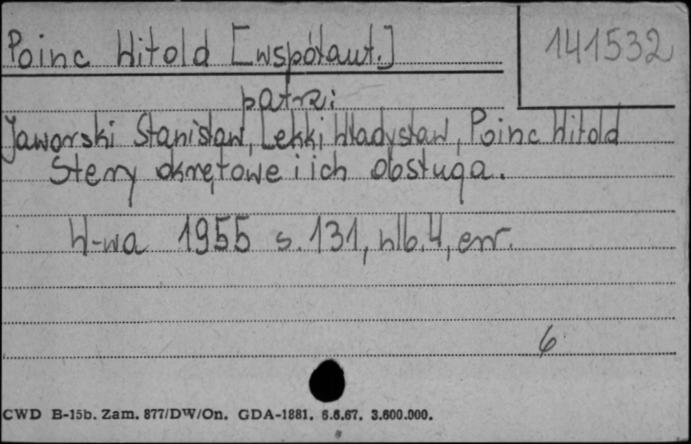 Poinc Witold [współaut.]
141532
patrz:
Jaworski Stanisław, Lekki Władysław, Poinc Witold
Stery okrętowe i ich obsługa.
W-wa 1955 s. 131, nlb. 4, err.
6
CWD B-15b. Zam. 877/DW/On. GDA-1881. 6.6.67. 3.600.000.